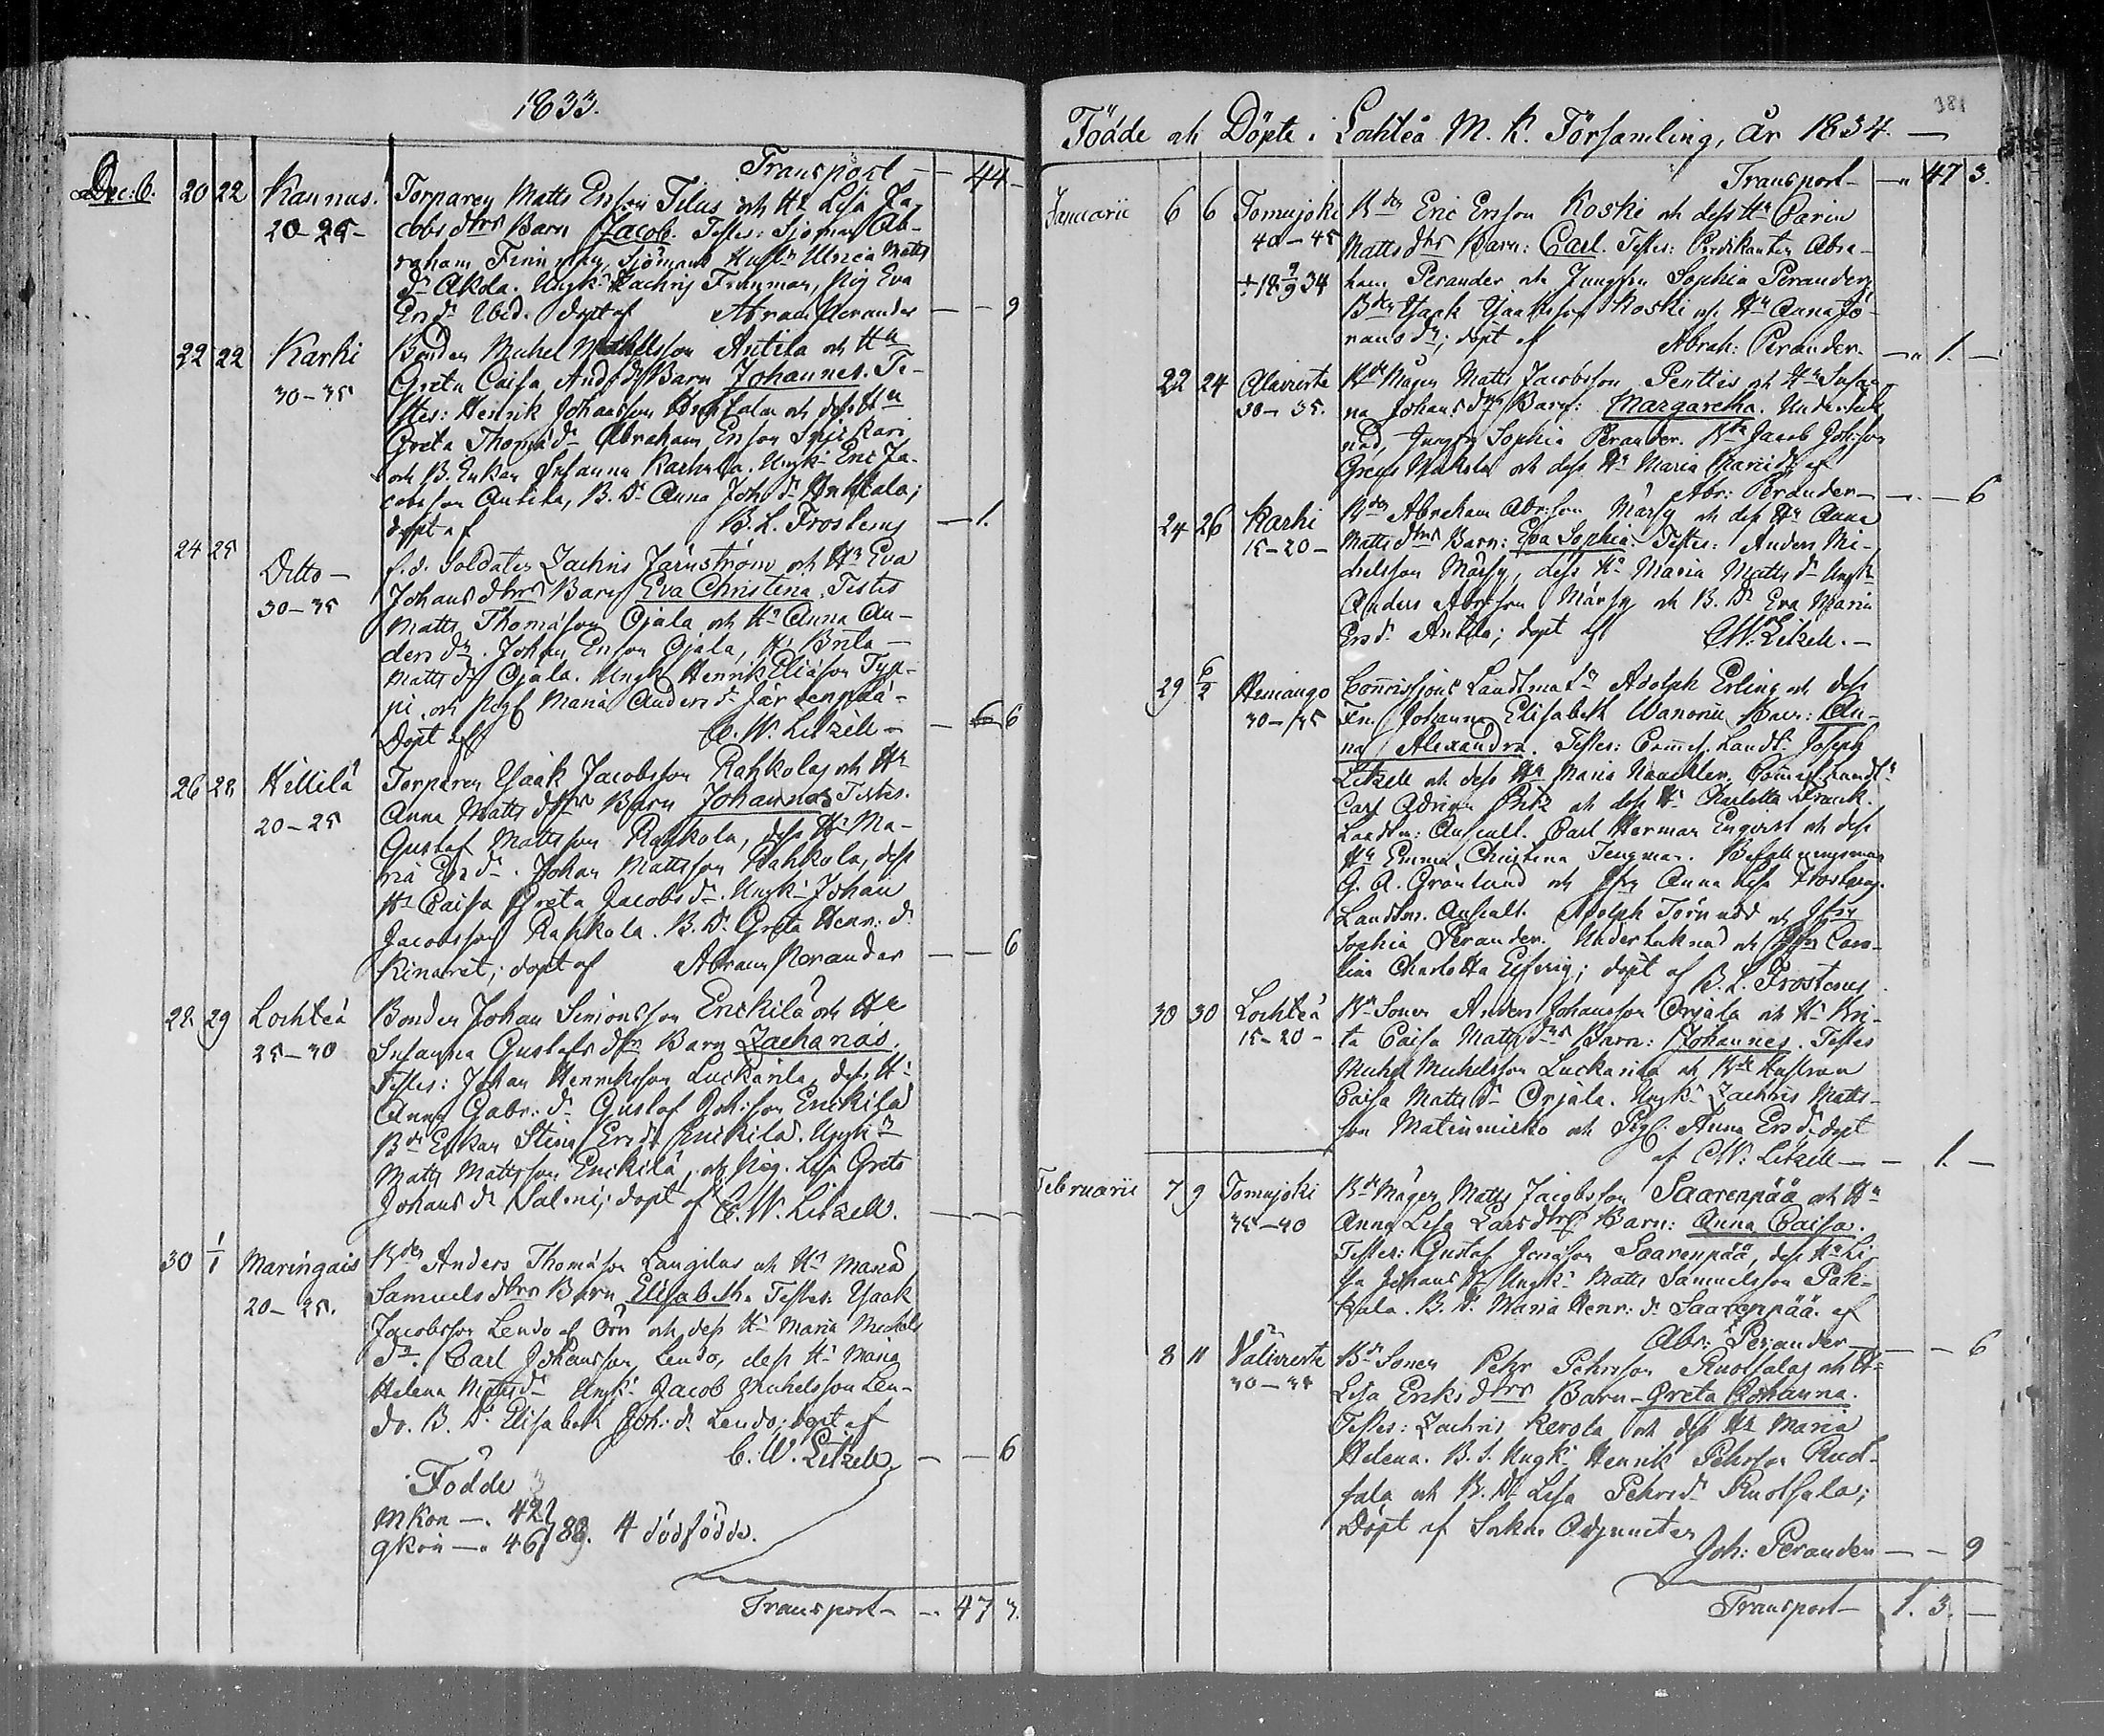 1833.
Transport — 44 —
Dec:b. 20 22 Kannus. Torparen Matts Ersson Tilus och Hu Lisa Ja-
20–25– cobsdtrs Barn Jacob. Testes: Sjöman Ab-
raham Finnman, Sjömans Hustr. Ulrica Matts
dr Akola. Ungk: Zachris Finnman, Pig Eva
Ersdr döpt af Abram Perander — — 9
22 22 Karhi Bonden Michel Michelsson Antila och Hu
30–35 Greta Caisa And:dtrs Barn Johannes. Te-
stes: Henrik Johansson Anttala och dess Hu
Greta Thomædr Abraham Ersson
och B. Enkan Susanna Karhula. Ungk: Eric Ja-
cobsson Antila, B. Dr Anna Joh:dr Anttala;
döpt af B. L. Frosterus — 1.
24 25 Ditto — f.d. Soldaten Zachris Järnström och Hu Eva
30–35 Johansdtrs Barn Eva Christina. Testes
Matts Thomasson Ojala och Hu Anna An-
dersdr. Johan Ersson Ojala, Hu Brita
Mattsdr Ojala. Ungk Henrik Eliasson Typ-
pi, och Pig. Maria Andersdr Järvenpää.
Döpt af C. W. Litzell — — 6
26 28 Hillilä Torparen Isaak Jacobsson Rahkola och Hu
20–25 Anna Mattsdtrs Barn Johannes Testes.
Gustaf Mattsson Rahkola, dess Hu Ma-
ria Ersdr. Johan Mattsson Rahkola, dess
Hu Caisa Greta Jacobsdr. Ungk: Johan
Jacobsson Rahkola. B. Dr Greta Henr: dr
Kinaret; döpt af Abram Perander — — 6
28 29 Lochteå Bonden Johan Simonsson Erickilä och Hu
25–30 Susanna Gustafsdtrs Barn Zacharias.
Testes: Johan Henriksson Luckarila, dess Hu
Anna Gabr: dr Gustaf Joh:son Erickilä
Bd Enkan Stina Ersdr Erickilä. Ungk:
Matts Mattsson Erickilä, och Pig. Lisa Greta
Johansdr Salmi; döpt af C. W. Litzell. — — —
30 1/1 Maringais Bden Anders Thomasson Langilas och Hu Maria
20–25. Samuelsdtrs Barn Elisabeth. Testes: Isaak
Jacobsson Lendo af Örn och dess Hu Maria Michels
dr. Carl Johansson Lendo, dess Hu Maria
Helena Mattsdr Ungk: Jacob Michelsson Len-
do. B. Dr Elisabeth Joh: dr Lendo; döpt af
C. W. Litzell — — 6
Födde
Mkön —. 42
qkön —. 46 88. 4 dödfödde.
Transport — 47 3.
381
Födde och Döpte i Lochteå M. K. Församling, År 1834. —
Transport — 47 3.
Januarii 6 6 Tomujoki Bden Eric Ersson Koski och dess Hu Carin
40–45 Mattsdtrs Barn: Carl. Testes: Predikanten Abra-
+ 18 9/9 34 ham Perander och Jungfru Sophia Perander,
Bden Isaak Isaaksson Koski och Hu Anna Jö-
ransdr; döpt af Abrah: Perander. — 1. —
22 24 Alaviirte Bde Mågen Matts Jacobsson Penttis och Hu Susan-
30–35. na Johansdtrs Barn: Margaretha. Underteck-
nad, Jungfru Sophia Perander. Bde Jacob Joh:son
Greus Makela och dess Hu Maria dr af
Abr: Perander — — 6
24 26 Karhi Bden Abraham Abr:son Märsy och dess Hu Anna
15–20– Mattsdtrs Barn: Eva Sophia. Testes: Anders Mi-
chelsson Märsy, dess Hu Maria Mattsdr Ungk
Anders Abr:son Märsy och B. Dr Eva Maria
Ersdr Antila; döpt af C. W. Litzell. —
29 6/2 Himango Commissions Landtmät:n Adolph Erling och dess
30–35 Fru Johanna Elisabeth Wanonii Barn: An-
na Alexandra. Testes: Com̄iss. Landt. Joseph
Litzell och dess Hu Maria Com̄iss. Landt:
Carl Adrian och dess Hu Charlotta Franck.
Landtm: Auscult. Carl Herman Enqvist och dess
Hu Emma Christina Tengman. Befallningsman
G. A. Grönlund och Jfru Anna Lisa Frosterus.
Landtm. Auscult. Adolph Törnudd och Jfru
Sophia Perander. Undertecknad och Jfru Caro-
lina Charlotta Elfving; döpt af B. L. Frosterus
30 30 Lochteå Bde Sonen Anders Johansson Orjala och Hu Bri-
15–20– ta Caisa Mattsdtrs Barn: Johannes. Testes
Michel Michelsson Luckarila och Bde Hustrun
Caisa Mattsdr Orjala. Ungk: Zachris Matts-
son Matinmicko och Pig: Anna Ersdr döpt
af C. W. Litzell — — 1. —
Februarii 7 9 Tomujoki Bde Mågen Matts Jacobsson Saarenpää och Hu
35–40 Anna Lisa Larsdtrs Barn: Anna Caisa.
Testes: Gustaf Jonasson Saarenpää, dess Hu Li-
sa Johansdr Ungk: Matts Samuelsson Pok-
kala. B. Dr Maria Henr: dr Saarenpää. af
Abr: Perander — — 6
8 11 Väliviirte Bde Sonen Pehr Pehrsson Ruotsala och Hu
30–35 Lisa Eriksdtrs Barn – Greta Johanna.
Testes: Zachris Kerola och dess Hu Maria
Helena. B. S. Ungk: Henrik Pehrsson Ruot-
sala och B. Dr Lisa Pehrsdr Ruotsala;
Döpt af Sockne Adjuncten
Joh: Perander — — 9
Transport — 1. 3. —